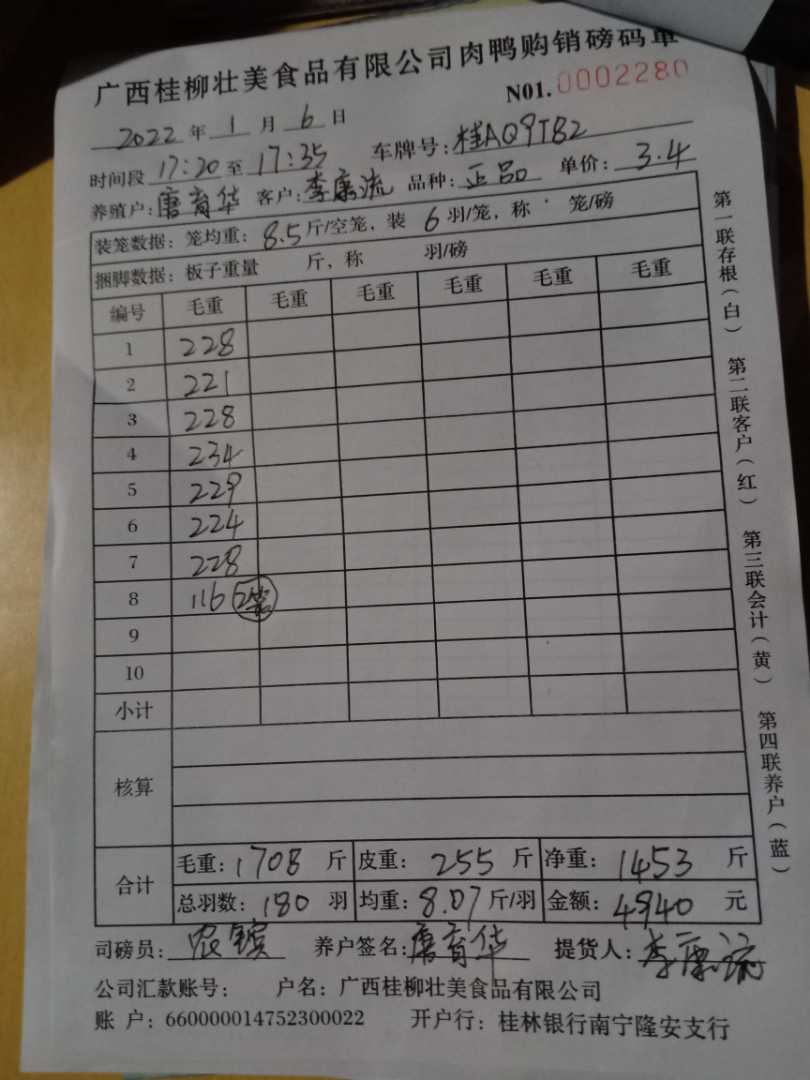 广西桂柳壮美食品有限公司肉鸭购销磅码单
N01.0002280
2022年1月6日
时间段17:20至17:35 车牌号:桂AQ9T82
养殖户:唐育华 客户:李康流 品种:正品 单价:3.4
装笼数据:笼均重:8.5斤/空笼,装6羽/笼,称 笼/磅
捆脚数据:板子重量 斤,称 羽/磅
编号 毛重 毛重 毛重 毛重 毛重 毛重
1 228
2 221
3 228
4 234
5 229
6 224
7 228
8 116
9
10
小计
核算
合计 毛重:1708斤 皮重:255斤 净重:1453斤
总羽数:180羽 均重:8.07斤/羽 金额:4940元
司磅员:农镔 养户签名:唐育华 提货人:李康流
公司汇款账号: 户名:广西桂柳壮美食品有限公司
账 户:660000014752300022 开户行:桂林银行南宁隆安支行
第一联存根(白) 第二联客户(红) 第三联会计(黄) 第四联养户(蓝)